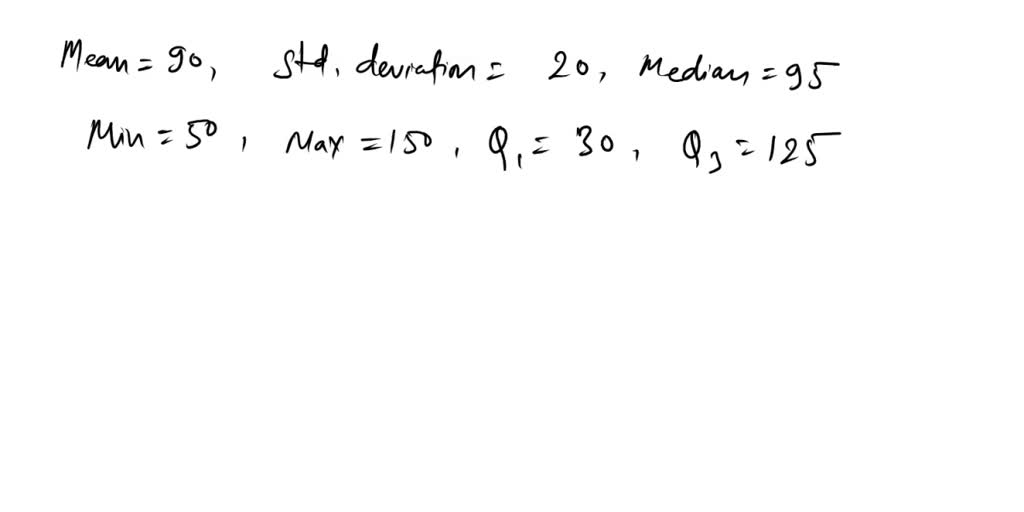 Mean = 90, Std. deviation = 20, Median = 95
Min = 50, Max = 150, Q₁ = 30, Q₃ = 125